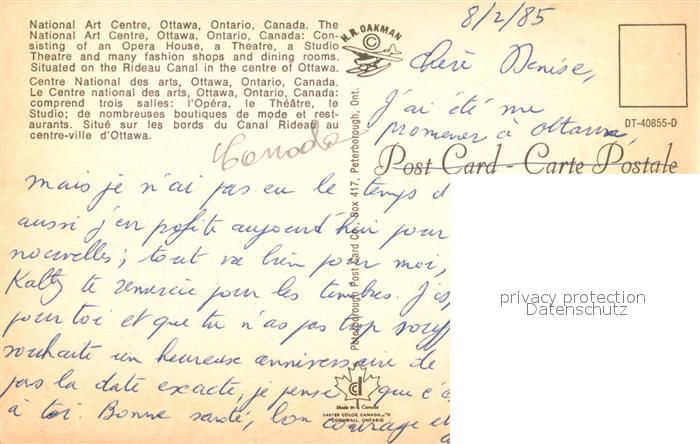 National Art Centre, Ottawa, Ontario, Canada. The
National Art Centre, Ottawa, Ontario, Canada: Con-
sisting of an Opera House, a Theatre, a Studio
Theatre and many fashion shops and dining rooms.
Situated on the Rideau Canal in the centre of Ottawa.
Centre National des arts, Ottawa, Ontario, Canada.
Le Centre national des arts, Ottawa, Ontario, Canada:
comprend trois salles: l'Opéra, le Théâtre, le
Studio; de nombreuses boutiques de mode et rest-
aurants. Situé sur les bords du Canal Rideau au
centre-ville d'Ottawa.
Canada
N.R. OAKMAN
©
Peterborough Post Card Co. Box 417, Peterborough, Ont.
8/2/85
DT-40855-D
Chère Denise,
J'ai été me
promener à Ottawa,
Post Card - Carte Postale
mais je n'ai pas eu le temps d
aussi j'en profite aujourd'hui pour
nouvelles; tout va bien pour moi,
Katty te remercie pour les timbres. J'es
pour toi et que tu n'as pas trop souff
souhaite un heureux anniversaire de
pas la date exacte, je pense que c'
à toi. Bonne santé, bon courage et
Made in Canada
DEXTER COLOR
CORNWALL, ONTARIO
privacy protection
Datenschutz